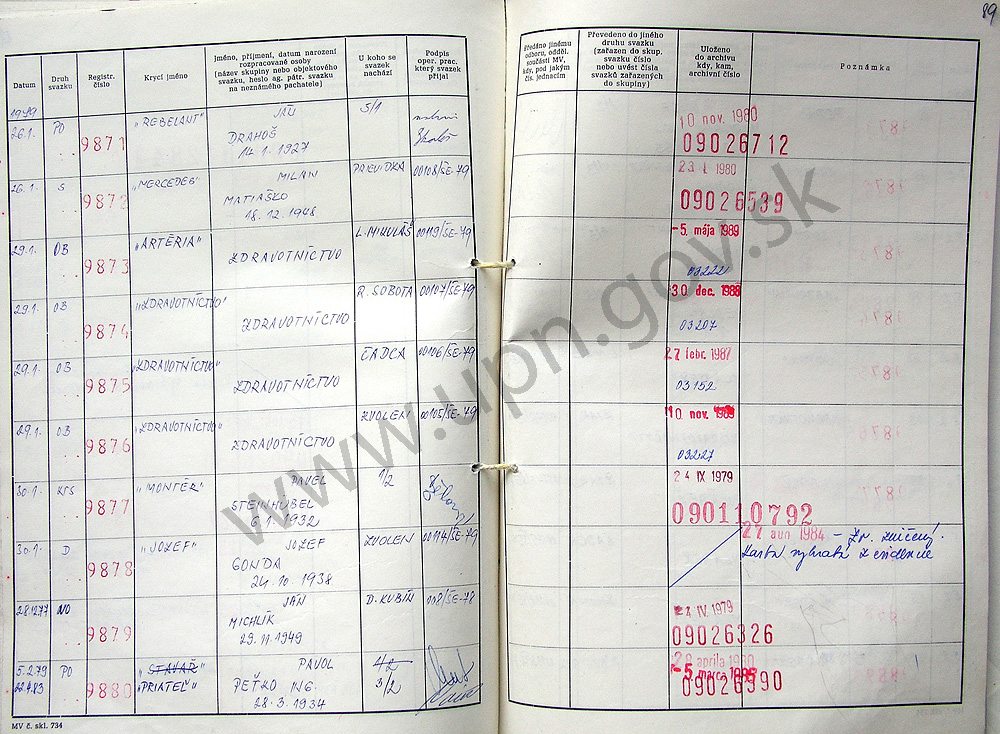 89
Datum
Druh
svazku
Registr.
číslo
Krycí jméno
Jméno, příjmení, datum narození
rozpracované osoby
(název skupiny nebo objektového
svazku, heslo ag. pátr. svazku
na neznámého pachatele)
U koho se
svazek
nachází
Podpis
oper. prac.
který svazek
přijal
Předáno jinému
odboru, odděl.
součásti MV,
kdy, pod jakým
čís. jednacím
Převedeno do jiného
druhu svazku
(zařazen do skup.
svazku číslo
nebo uvést čísla
svazků zařazených
do skupiny)
Uloženo
do archivu
kdy, kam,
archivní číslo
Poznámka
1979
26.1. PO 9871 "REBELANT" JÁN S/1
DRAHOŠ
14.1.1927
10 nov. 1980
09026712
26.1. S 9872 "MERCEDES" MILAN PRIEVIDZA 00108/ŠE-79
MATIAŠKO
18.12.1948
23 I 1980
09026539
29.1. OB 9873 "ARTÉRIA" ZDRAVOTNÍCTVO L. MIKULÁŠ 00119/ŠE-79
-5. mája 1989
03222
29.1. OB 9874 "ZDRAVOTNÍCTVO" ZDRAVOTNÍCTVO R. SOBOTA 00107/ŠE-79
30 dec. 1988
03207
29.1. OB 9875 "ZDRAVOTNÍCTVO" ZDRAVOTNÍCTVO ČADCA 00106/ŠE-79
27 febr. 1987
03152
29.1. OB 9876 "ZDRAVOTNÍCTVO" ZDRAVOTNÍCTVO ZVOLEN 00105/ŠE-79
10 nov. 1989
03227
30.1. KTS 9877 "MONTÉR" PAVEL 1/2
STEINHÜBEL
6.1.1932
24 IX 1979
090110792
30.1. D 9878 "JOZEF" JOZEF ZVOLEN 00114/ŠE-79
GONDA
24.10.1938
27 jún 1984 - Zv. zničený.
Karta vybratá z evidencie
28.12.77 NO 9879 JÁN D. KUBÍN 008/ŠE-78
MICHLÍK
29.11.1949
IV. 1979
09026326
5.2.79 PO 9880 "STAVAŘ" PAVOL 4/2
22.4.83 "PRIATEĽ" PEŤKO ING. 3/2
28.3.1934
28 apríla 1980
-5 marca 1985
09026390
MV č. skl. 734
www.upn.gov.sk